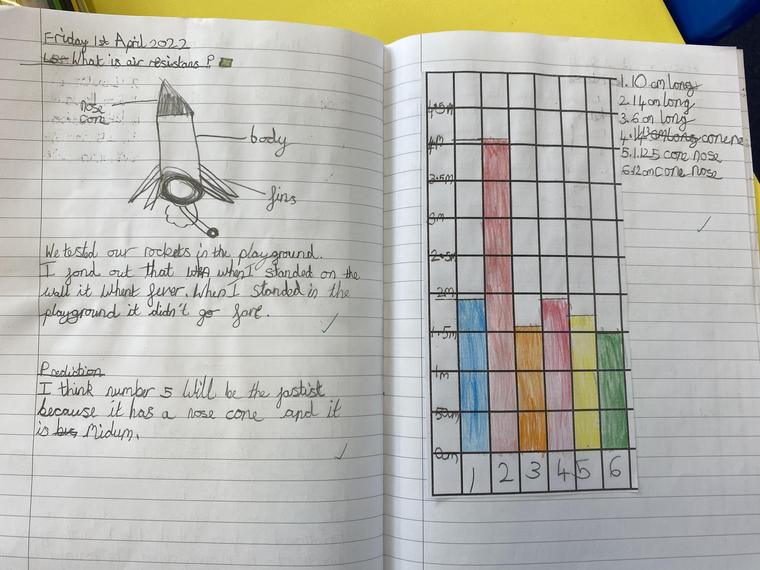 Friday 1st April 2022
What is air resistans?
nose
cone
body
fins
We testd our rockets in the playground.
I fond out that when I standed on the
wall it whent fever. When I standed in the
playground it didn't go fare.
Prediction
I think number 5 will be the fastist
because it has a nose cone and it
is Midum.
4.5m
4m
3.5m
3m
2.5m
2m
1.5m
1m
50m
0m
1 2 3 4 5 6
1.10 cm long
2.14 cm long
3.6 cm long
4.
5.1.125 cone nose
6.12 cm cone nose